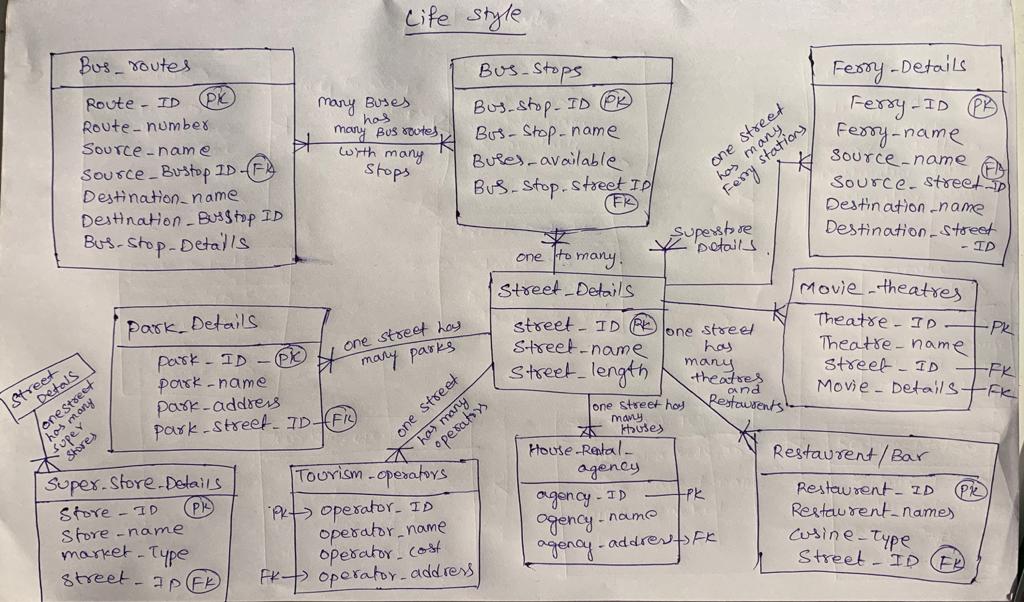 Life Style
Bus_routes
Route_ID (PK)
Route_number
Source_name
Source_Bustop ID (FK)
Destination_name
Destination_BusStop ID
Bus_Stop_Details
many Buses
has
many Bus routes
with many
Stops
Bus_Stops
Bus_Stop_ID (PK)
Bus_Stop_name
Buses_available
Bus_Stop_Street ID
(FK)
one street
has many
Ferry stations
Ferry_Details
Ferry_ID (PK)
Ferry_name
Source_name
Source_Street_ID (FK)
Destination_name
Destination_Street
_ID
one to many.
Superstore
Details
Street_Details
Street_ID (PK)
Street_name
Street_length
Movie_theatres
Theatre_ID PK
Theatre_name
Street_ID FK
Movie_Details FK
Park_Details
Park_ID (PK)
Park_name
Park_address
Park_Street_ID (FK)
one street has
many parks
one street
has many
operators
one street
has
many
theatres
and
Restaurents
one street has
many
Houses
Street
Details
one street
has many
super
stores
Super_Store_Details
Store_ID (PK)
Store_name
market_Type
Street_ID (FK)
Tourism_operators
PK operator_ID
operator_name
operator_cost
FK operator_address
House_Rental_
agency
agency_ID PK
agency_name
agency_address FK
Restaurent/Bar
Restaurent_ID (PK)
Restaurent_names
Cusine_Type
Street_ID (FK)